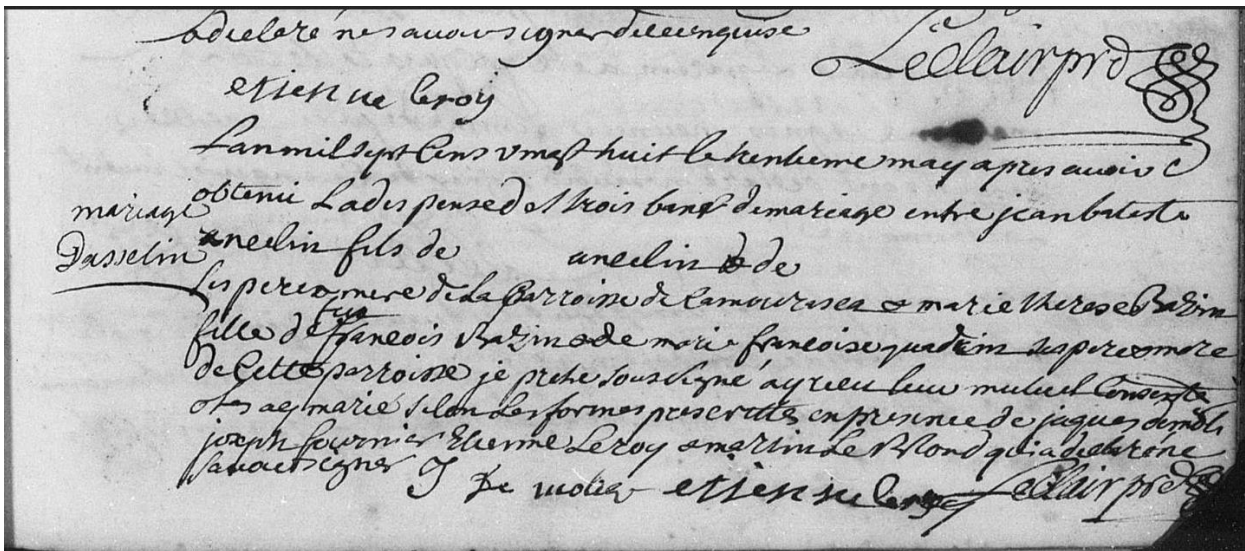 a déclaré ne savoir signer de ce enquise
Leclair prd
etienne leroy
Lan mil sept Cens vingt huit le trentieme may apres avoir
obtenu La dispense de trois bans de mariage entre jean batiste
mariage
Dasselin
ancelin fils de ancelin & de
ses pere & mere de La parroisse de Camourasca & marie therese Bazin
fille de feu francois Bazin & de marie francoise ses pere & mere
de Cette parroisse je pretre soussigné ay recu leur mutuel Consente
& les ay marié selon Les formes prescrittes en presence de jaques
joseph fournier Etienne Leroy & martin Le Blond qui a declaré ne
savoir signer etienne leroy Leclair prd